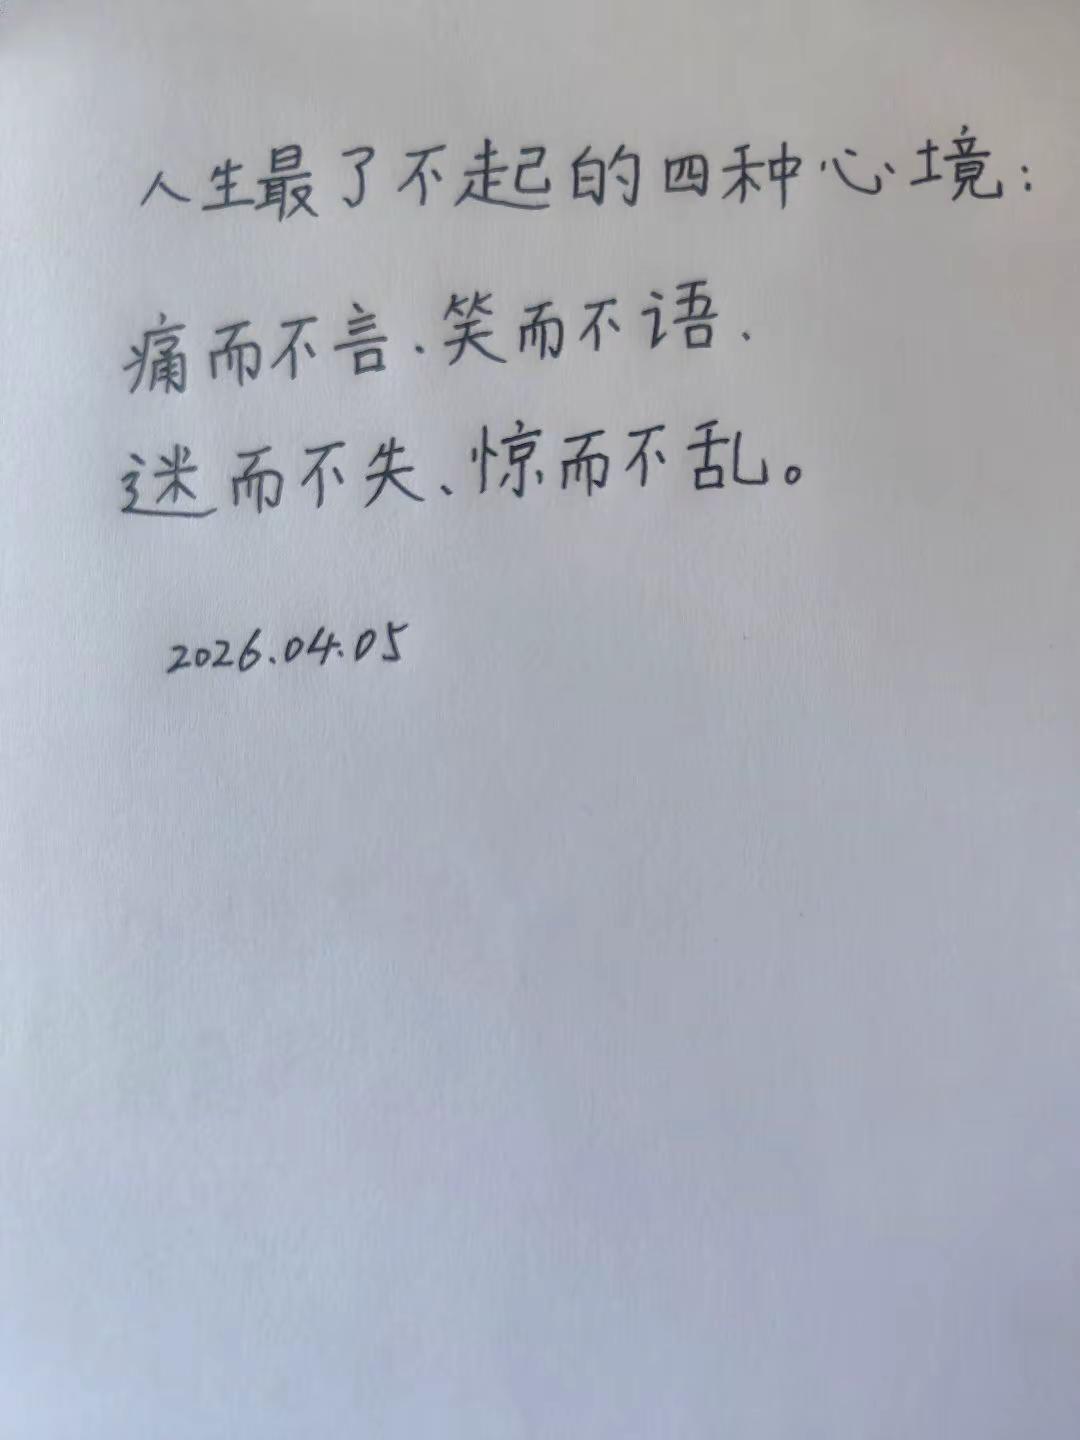 人生最了不起的四种心境：
痛而不言、笑而不语、
迷而不失、惊而不乱。
2026.04.05